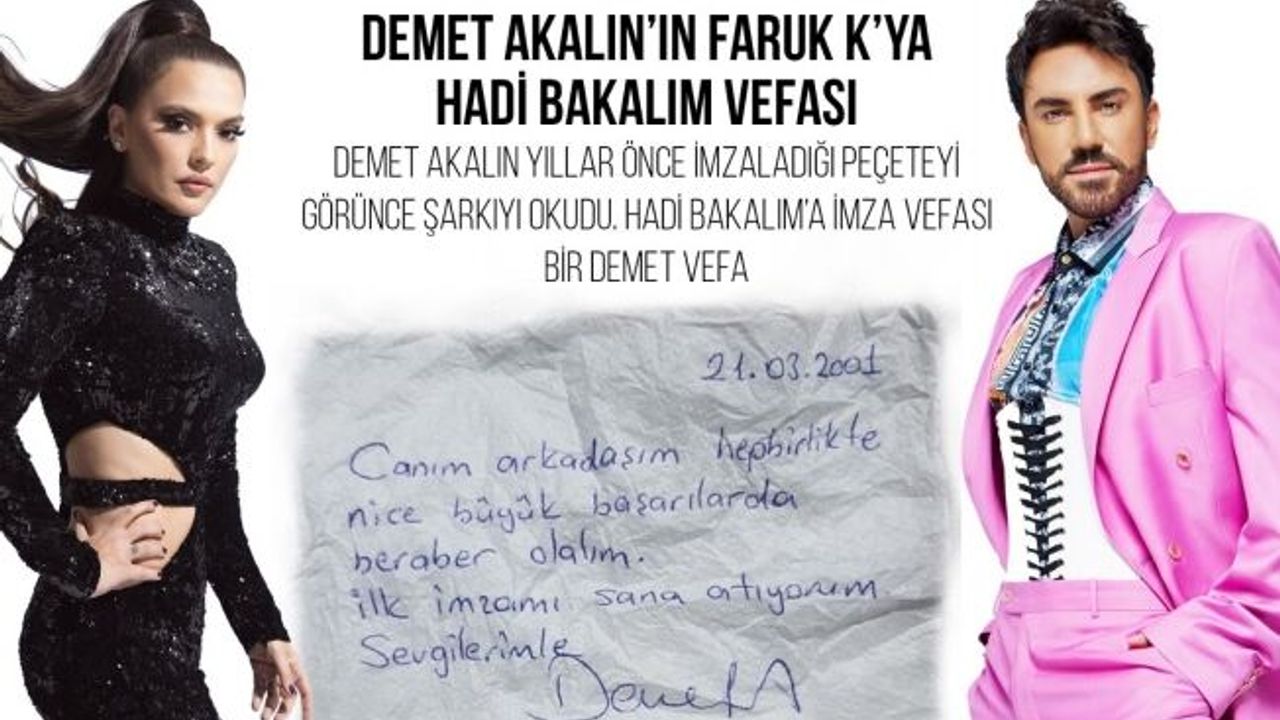 DEMET AKALIN'IN FARUK K'YA
HADİ BAKALIM VEFASI
DEMET AKALIN YILLAR ÖNCE İMZALADIĞI PEÇETEYİ
GÖRÜNCE ŞARKIYI OKUDU. HADİ BAKALIM'A İMZA VEFASI
BİR DEMET VEFA
21.03.2001
Canım arkadaşım hepbirlikte
nice büyük başarılarda
beraber olalım.
ilk imzamı sana atıyorum
Sevgilerimle
Demet A